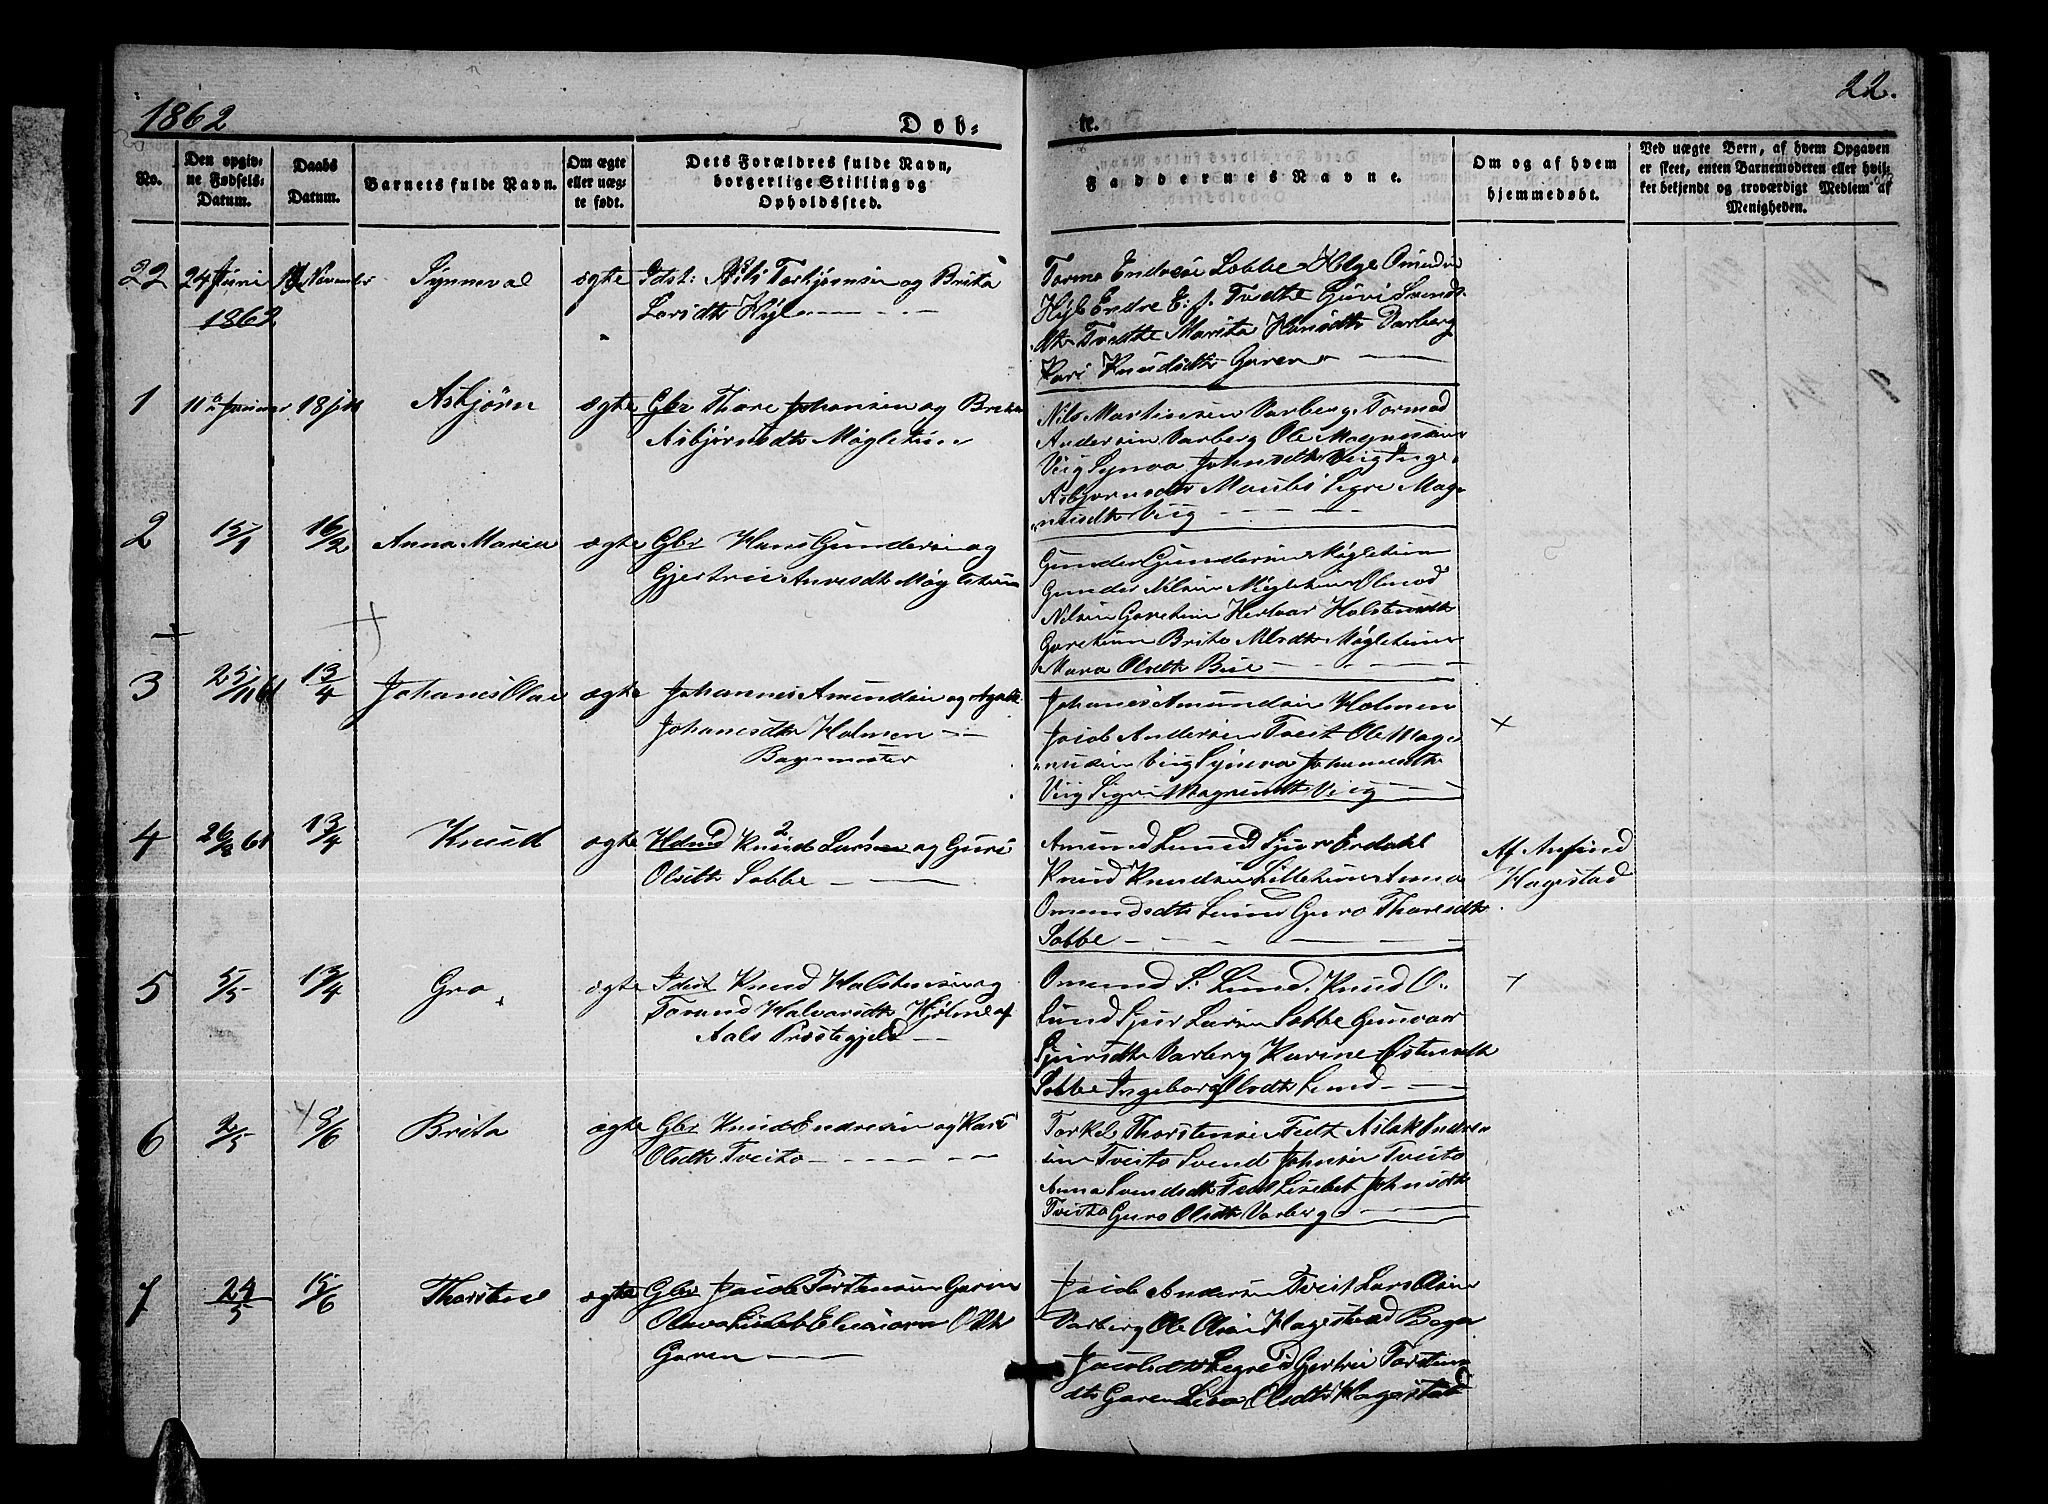 1862
Døb-
te.
22.
No.
Den opgiv-
ne Fødsels-
Datum.
Daabs
Datum.
Barnets fulde Navn.
Om ægte
eller uæg-
te født.
Dets Forældres fulde Navn,
borgerlige Stilling og
Opholdssted.
Faddernes Navne.
Om og af hvem
hjemmedøbt.
Ved uægte Børn, af hvem Opgaven
er skeet, enten Barnemoderen eller hvil-
ket bekjendt og troværdigt Medlem af
Menigheden.
22 24 Juni November Synneva ægte Nils Torkjørnsen og Brita
1862
Larsdtr
Endresen Sobbe Helge
Endre E: s. Tvedte Guri
Tvedte Marita Varberg
Kari Knudsdtr Garen
1 11 Januar 18 Asbjørn ægte Gbr Thore Johansen og Brita
Asbjørnsdtr Møgletun
Nils Martinsen Varberg Tormod
Andersen Varberg Ole Magnusen
Viig Synva Johnsdtr Viig Inge
Asbjørnsdtr Sigri Mag
nusdtr Viig
2 15/1 16/2 Anna Maria ægte Gbr Hans Gundersen og
Gjertrue Møgletun
Gunder Gundersen Møgletun
Gunder Nilsen Møgletun Olmod
Nilsen Garetun Herbor Halstensdtr
Garetun Brita Nilsdtr Møgletun
Olsdtr Bue
3 25/11 61 13/4 Johanes Olai ægte Johannes Amundsen og Agate
Johanesdtr Holmen
Bagermester
Johanes Amundsen Holmen
Jacob Andersen Tveit Ole Mag
nusen Viig Synva Johannesdtr
Viig Sigri Magnusdtr Viig
4 26/8 61 13/4 Knud ægte Hdmd Knud Larsen og Guri
Olsdtr Sobbe
Amund Lund Sjur Erdahl
Knud Knudsen Lilletun Anna
Omundsdtr Lund Guro Thoresdtr
Sobbe
Af Anfind
Hagestad
5 5/3 13/4 Gro ægte Idst Knud Halstensen og
Torand Halvorsdtr Hjølmo af
Aals Præstegjeld
Omund S. Lund, Knud O.
Lund Sjur Larsen Sobbe Gunvor
Sjursdtr Varberg Karine Østensdtr
Sobbe Ingeborg Olsdtr Lund
6 2/5 8/6 Brita ægte Gbr Knud Endresen og Kari
Olsdtr Tveito
Torkel Thorstensen Tveit Aslak Endre
sen Tveito Svend Johnsen Tveito
Anna Svendsdtr Tveit Lisebet Johnsdtr
Tveito Guro Olsdtr Varberg
7 24/5 15/6 Thorsten ægte Gbr Jacob Torstensen Garen
Olsdtr
Garen
Jacob Andersen Tveit Lars Olsen
Varberg Ole Olsen Hagestad
Jacobsdtr Legreid Gjertrue Torstens
dtr Garen Olsdtr Hagestad